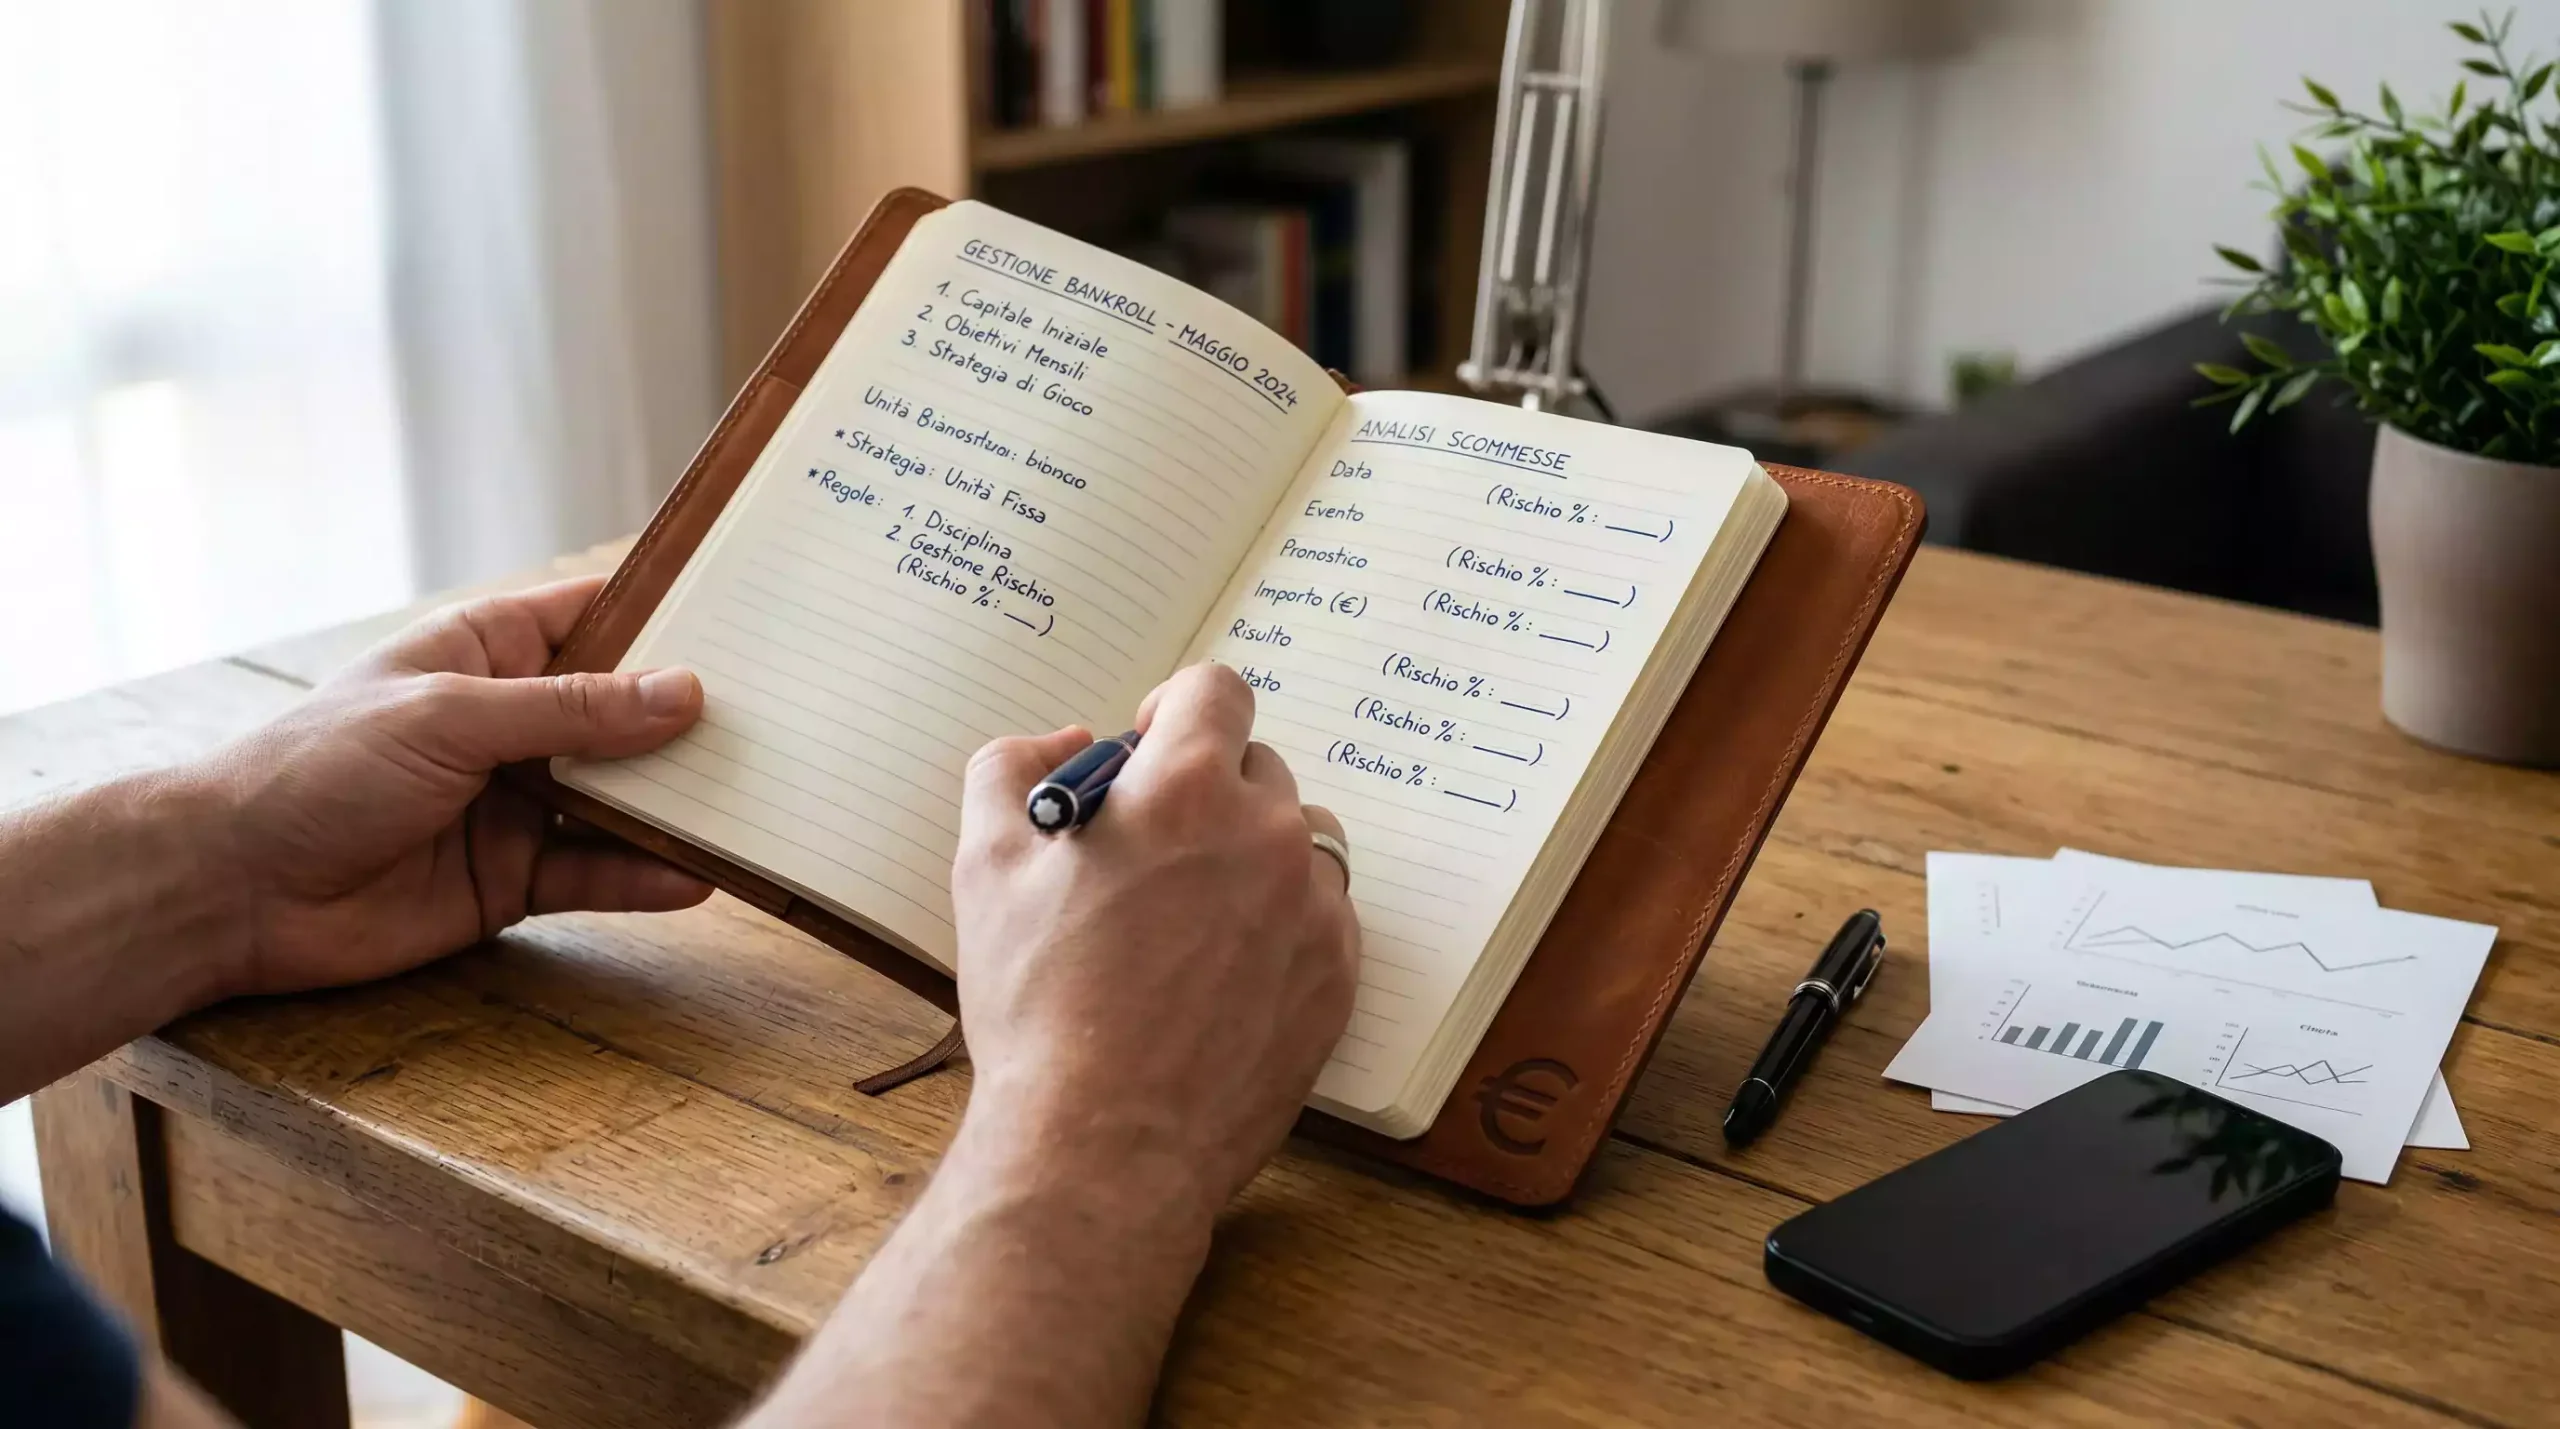 GESTIONE BANKROLL - MAGGIO 2024
1. Capitale Iniziale
2. Obiettivi Mensili
3. Strategia di Gioco
Unità
* Strategia: Unità Fissa
* Regole: 1. Disciplina
2. Gestione Rischio
(Rischio %: ___)
ANALISI SCOMMESSE
Data (Rischio %: ___)
Evento (Rischio %: ___)
Pronostico (Rischio %: ___)
Importo (€) (Rischio %: ___)
Risulto (Rischio %: ___)
ltato (Rischio %: ___)
€